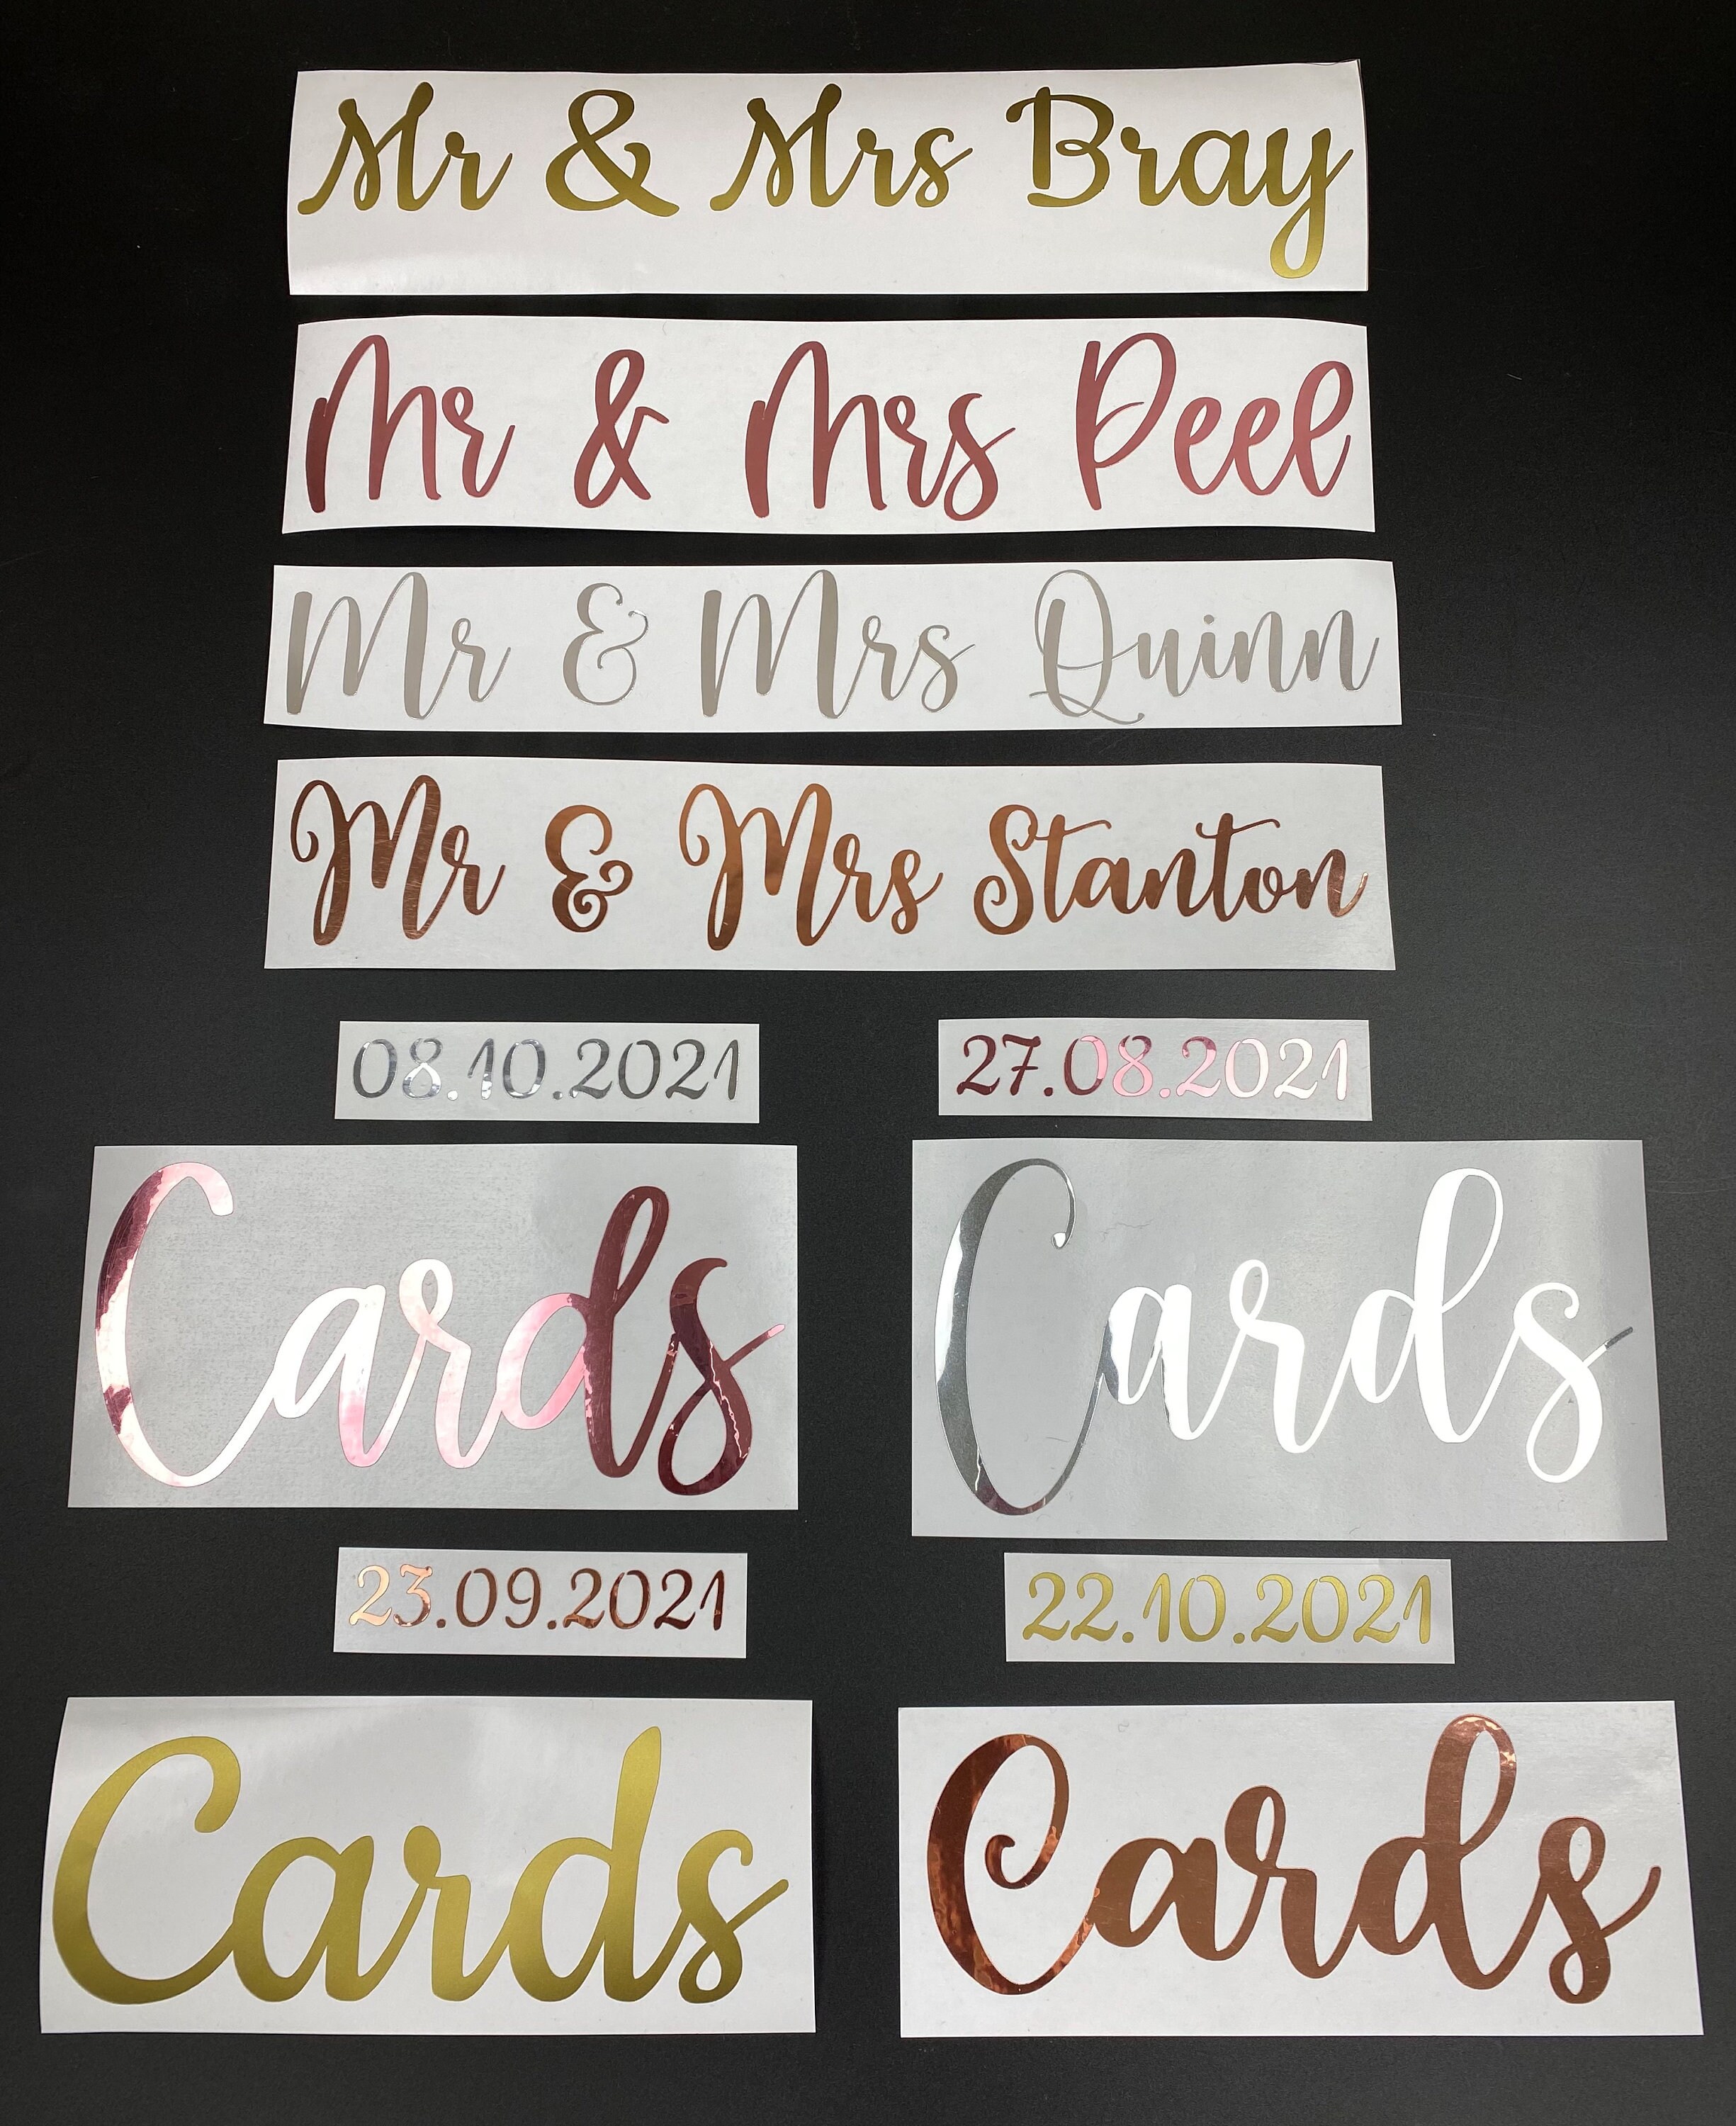 Mr & Mrs Bray
Mr & Mrs Peel
Mr & Mrs Quinn
Mr & Mrs Stanton
08.10.2021
27.08.2021
Cards
Cards
23.09.2021
22.10.2021
Cards
Cards